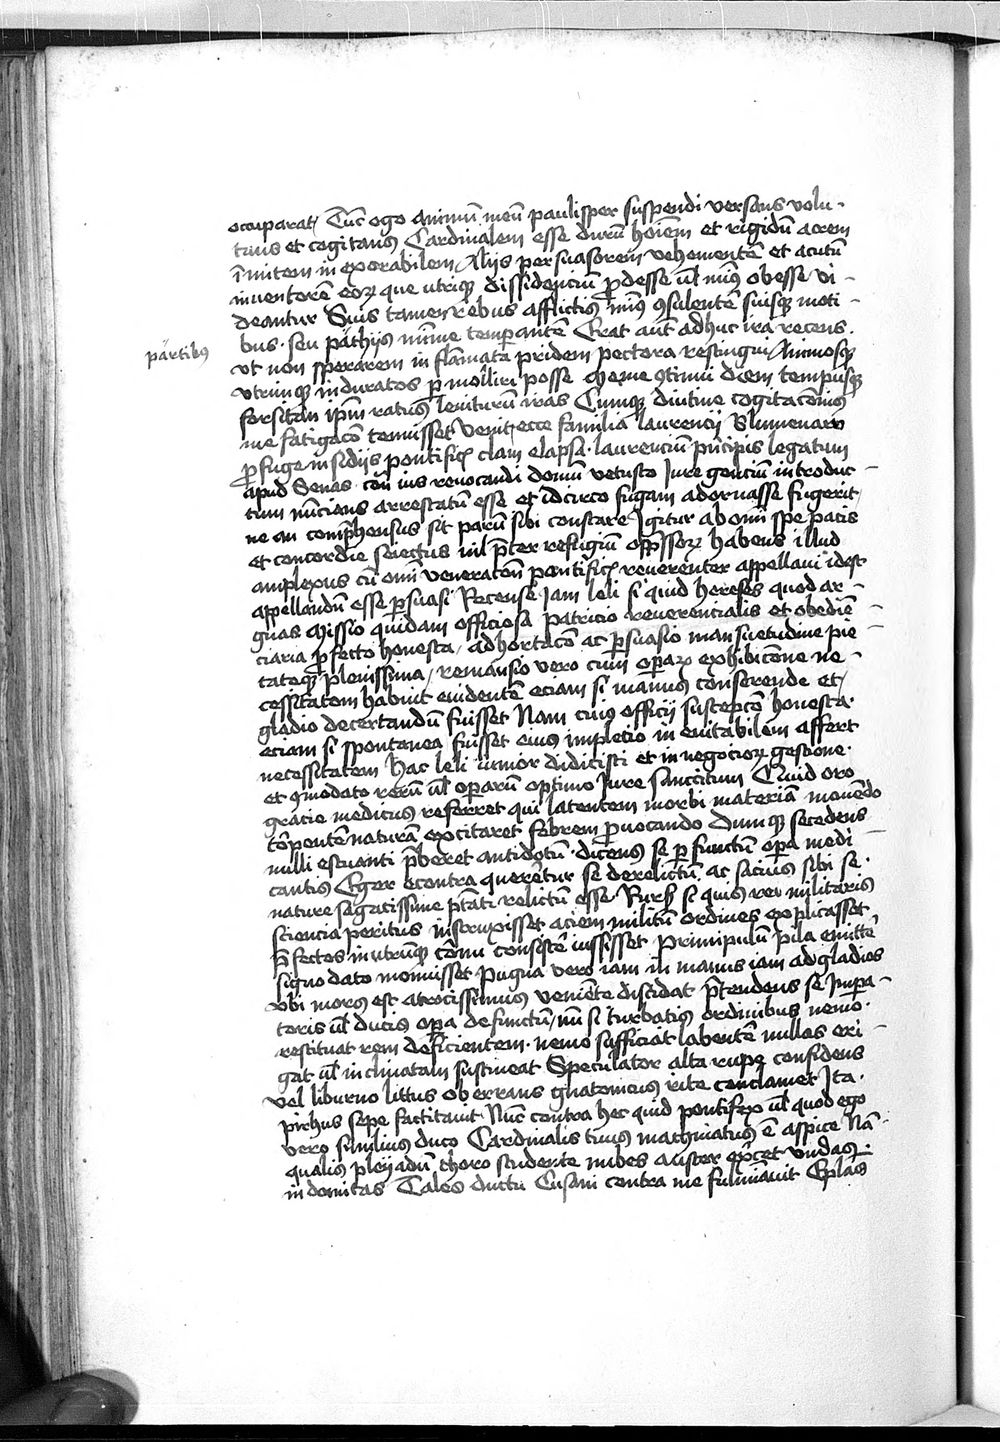 occuparat, Tūc ego animū meū paulisper suspendi versans volu-
tans et cogitans Cardinalem esse dirū hoīem et rigidū acrem
īmitem in exorabilem Aliis persuasorem vehementē et acutū
inventorē eoꝝ que utriqꝫ dissidenciū ꝓdesse ūl minꝰ obesse vi-
deantur Suis tamen rebus afflictis minꝰ ꝯsulentē suisqꝫ moti-
bus. seu pathiis minime temperantē Erat aūt adhuc ira recens.
partibꝰ
ut non sperarem in flāmata pridem pectora restingui Animosqꝫ
utrimqꝫ induratos ꝑmolliri posse
forsitan ipm̄ ratus leniturū iras Cumqꝫ diutine cogitacōnis
me fatigacō tenuisset Venit ecce familia laurencii Blumenaw
ꝓfuge insidiis pontificis clam elapsa. laurenciū pncipis legatum
apud Senas. cōn ius revocandi domū vetusto Iure genciū introduc-
tum nuncians arrestatū esse et idcirco fugam adornasse fugerit,
ne an comprehensus sit parū sibi constare Igitur ab omī spe pacis
et concordie seiectus nil p̄ter refugiū opp̄ssoꝝ habens illud
amplexus cū omī veneratōn pontificē reverenter appellavi idest
appellandū esse ꝑsuasi Recense iam leli si quid hereses quod ar-
guas Missio quidam officiosa patricio reverencialis et obediē-
ciaria ꝓfecto honesta, adhortacō ac ꝑsuasio mansuetudine pie-
tateqꝫ plenissima, remansio vero cum oꝑaꝝ exhibicōne ne-
cessitatem habuit evidentē eciam si manus conserende et,
gladio decertandū fuisset Nam cuiꝰ officii susceptō honesta.
eciam si spontanea fuisset eius impletio in evitabilem affert
necessitatem hac leli iunior didicisti et in negocioꝝ gestione.
et ꝯmodato rerū ūl oꝑarū optimo Iure sanccitum Quid oro
gracie medicus referret qui latentem morbi materiā movēdo
tōpentē naturā excitaret febrem ꝓvocando Dumqꝫ secedens
nulli estuanti p̄beret antidotū. dicens se ꝑfunctū oꝑa medi
cantis Eger econtra querētur se derelictū. ac sacius sibi se.
nature sagatissime p̄tati relictū esse Rursꝫ si quis rei militaris
sciencia peritus instruxisset aciem militū ordines explicasset
p̄fectos in utrūqꝫ cōrnu consistē iussisset primipulū pila emittē
signo dato monuisset Pugna vero iam in manus iam ad gladios
ubi mors est atrocissimus veniēte discidat p̄tendens se Impa-
toris ūl ducis oꝑa defunctū, nū si turbatis ordinibus nemo.
restituat rem deficientem. nemo sufficiat labentē nullas eri-
gat ūl inclinatam sustineat Speculator alta rupe confidens
vel liburno littus oberrans gnatonicus rite conclamet Ita.
pirhus sepe factitavit Nūc contra hec quid pontifex ūl quod ego
vero similius duco Cardinalis tuus machinatus ē aspice Nā-
qualis pleyadū choro scindente nubes auster exercet undas.
in domitas Tales ductu Cusani contra me fulminavit Eplās